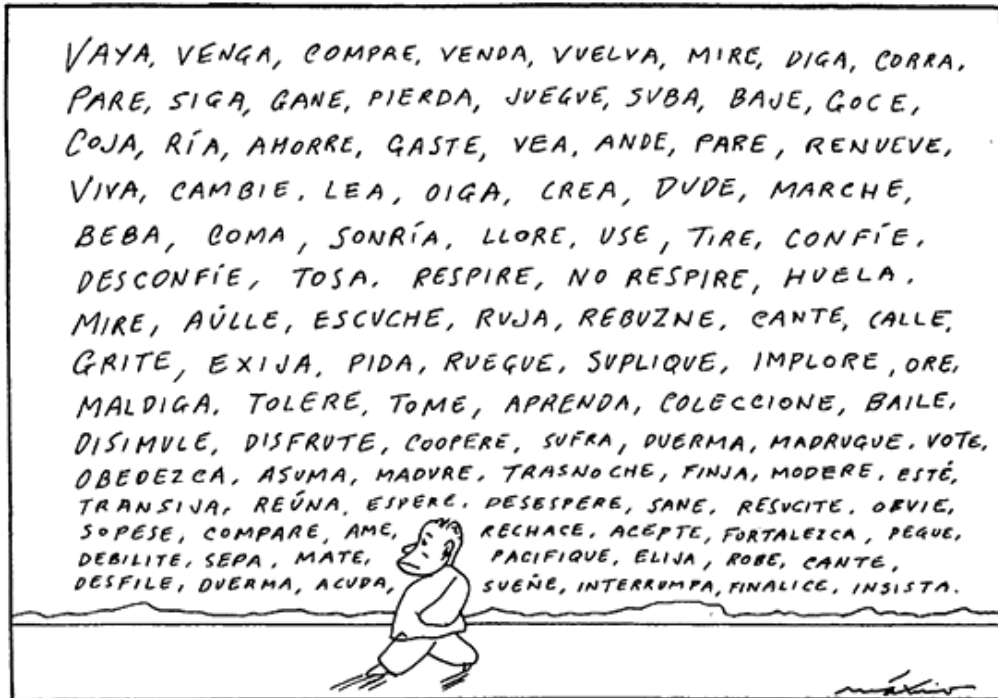 VAYA, VENGA, COMPRE, VENDA, VUELVA, MIRE, DIGA, CORRA.
PARE, SIGA, GANE, PIERDA, JUEGUE, SUBA, BAJE, GOCE,
COJA, RÍA, AHORRE, GASTE, VEA, ANDE, PARE, RENUEVE,
VIVA, CAMBIE. LEA, OIGA, CREA, DUDE, MARCHE,
BEBA, COMA, SONRÍA, LLORE, USE, TIRE, CONFÍE.
DESCONFÍE, TOSA. RESPIRE, NO RESPIRE, HUELA.
MIRE, AÚLLE, ESCUCHE, RUJA, REBUZNE, CANTE, CALLE,
GRITE, EXIJA, PIDA, RUEGUE, SUPLIQUE, IMPLORE, ORE,
MALDIGA. TOLERE, TOME, APRENDA, COLECCIONE, BAILE,
DISIMULE, DISFRUTE, COOPERE, SUFRA, DUERMA, MADRUGUE. VOTE,
OBEDEZCA, ASUMA, MADURE, TRASNOCHE, FINJA, MODERE, ESTÉ,
TRANSIJA, REÚNA, ESPERE, DESESPERE, SANE, RESUCITE, OBVIE,
SOPESE, COMPARE, AME, RECHACE, ACEPTE, FORTALEZCA, PEGUE,
DEBILITE, SEPA, MATE, PACIFIQUE, ELIJA, ROBE, CANTE,
DESFILE, DUERMA, ACUDA, SUEÑE, INTERRUMPA, FINALICE, INSISTA.
máximo